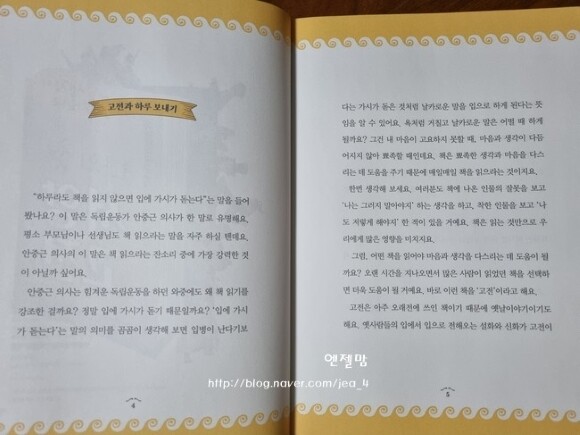 고전과 하루 보내기
“하루라도 책을 읽지 않으면 입에 가시가 돋는다”는 말을 들어
봤나요? 이 말은 독립운동가 안중근 의사가 한 말로 유명해요.
평소 부모님이나 선생님도 책 읽으라는 말을 자주 하실 텐데요.
안중근 의사의 이 말은 책 읽으라는 잔소리 중에 가장 강력한 것
이 아닐까 싶어요.
안중근 의사는 힘겨운 독립운동을 하던 와중에도 왜 책 읽기를
강조한 걸까요? 정말 입에 가시가 돋기 때문일까요? ‘입에 가시
가 돋는다’는 말의 의미를 곰곰이 생각해 보면 입병이 난다기보
4
다는 가시가 돋은 것처럼 날카로운 말을 입으로 하게 된다는 뜻
임을 알 수 있어요. 욕처럼 거칠고 날카로운 말은 어떨 때 하게
될까요? 그건 내 마음이 고요하지 못할 때, 마음과 생각이 다듬
어지지 않아 뾰족할 때인데요. 책은 뾰족한 생각과 마음을 다스
리는 데 도움을 주기 때문에 매일매일 책을 읽으라는 것이지요.
한번 생각해 보세요. 여러분도 책에 나온 인물의 잘못을 보고
‘나는 그러지 말아야지’ 하는 생각을 하고, 착한 인물을 보고 ‘나
도 저렇게 해야지’ 한 적이 있을 거예요. 책은 읽는 것만으로 우
리에게 많은 영향을 미치지요.
그럼, 어떤 책을 읽어야 마음과 생각을 다스리는 데 도움이 될
까요? 오랜 시간을 지나오면서 많은 사람이 읽었던 책을 선택하
면 더욱 도움이 될 거예요. 바로 이런 책을 ‘고전’이라고 해요.
고전은 아주 오래전에 쓰인 책이기 때문에 옛날이야기이기도
해요. 옛사람들의 입에서 입으로 전해오는 설화와 신화가 고전이
5
엔젤맘
http://blog.naver.com/jea_4